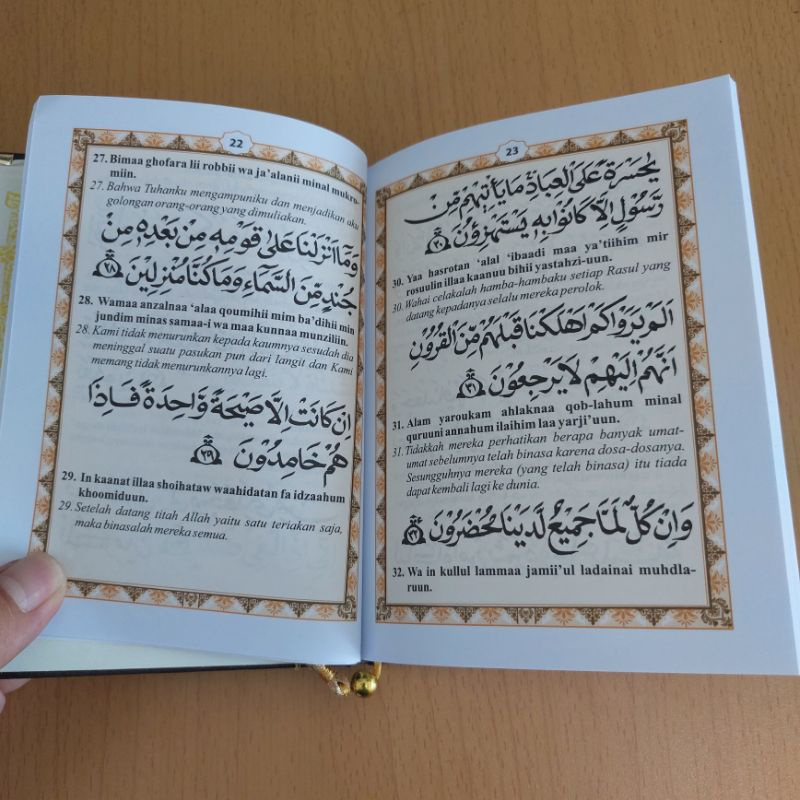 22
27. Bimaa ghofara lii robbii wa ja'alanii minal mukru-
miin.
27. Bahwa Tuhanku mengampuniku dan menjadikan aku
golongan orang-orang yang dimuliakan.
وَمَا اَنْزَلْنَا عَلٰى قَوْمِهٖ مِنْ بَعْدِهٖ مِنْ
جُنْدٍ مِّنَ السَّمَاۤءِ وَمَا كُنَّا مُنْزِلِيْنَ ٢٨
28. Wamaa anzalnaa 'alaa qoumihii mim ba'dihii min
jundim minas samaa-i wa maa kunnaa munziliin.
28. Kami tidak menurunkan kepada kaumnya sesudah dia
meninggal suatu pasukan pun dari langit dan Kami
memang tidak menurunkannya lagi.
اِنْ كَانَتْ اِلَّا صَيْحَةً وَّاحِدَةً فَاِذَا
هُمْ خَامِدُوْنَ ٢٩
29. In kaanat illaa shoihataw waahidatan fa idzaahum
khoomiduun.
29. Setelah datang titah Allah yaitu satu teriakan saja,
maka binasalah mereka semua.
23
يٰحَسْرَةً عَلَى الْعِبَادِ مَا يَأْتِيْهِمْ مِّنْ
رَّسُوْلٍ اِلَّا كَانُوْا بِهٖ يَسْتَهْزِءُوْنَ ٣٠
30. Yaa hasrotan 'alal 'ibaadi maa ya'tiihim mir
rosuulin illaa kaanuu bihii yastahzi-uun.
30. Wahai celakalah hamba-hambaku setiap Rasul yang
datang kepadanya selalu mereka perolok.
اَلَمْ يَرَوْا كَمْ اَهْلَكْنَا قَبْلَهُمْ مِّنَ الْقُرُوْنِ
اَنَّهُمْ اِلَيْهِمْ لَا يَرْجِعُوْنَ ٣١
31. Alam yaroukam ahlaknaa qob-lahum minal
quruuni annahum ilaihim laa yarji'uun.
31. Tidakkah mereka perhatikan berapa banyak umat-
umat sebelumnya telah binasa karena dosa-dosanya.
Sesungguhnya mereka (yang telah binasa) itu tiada
dapat kembali lagi ke dunia.
وَاِنْ كُلٌّ لَّمَّا جَمِيْعٌ لَّدَيْنَا مُحْضَرُوْنَ ٣٢
32. Wa in kullul lammaa jamii'ul ladainai muhdla-
ruun.